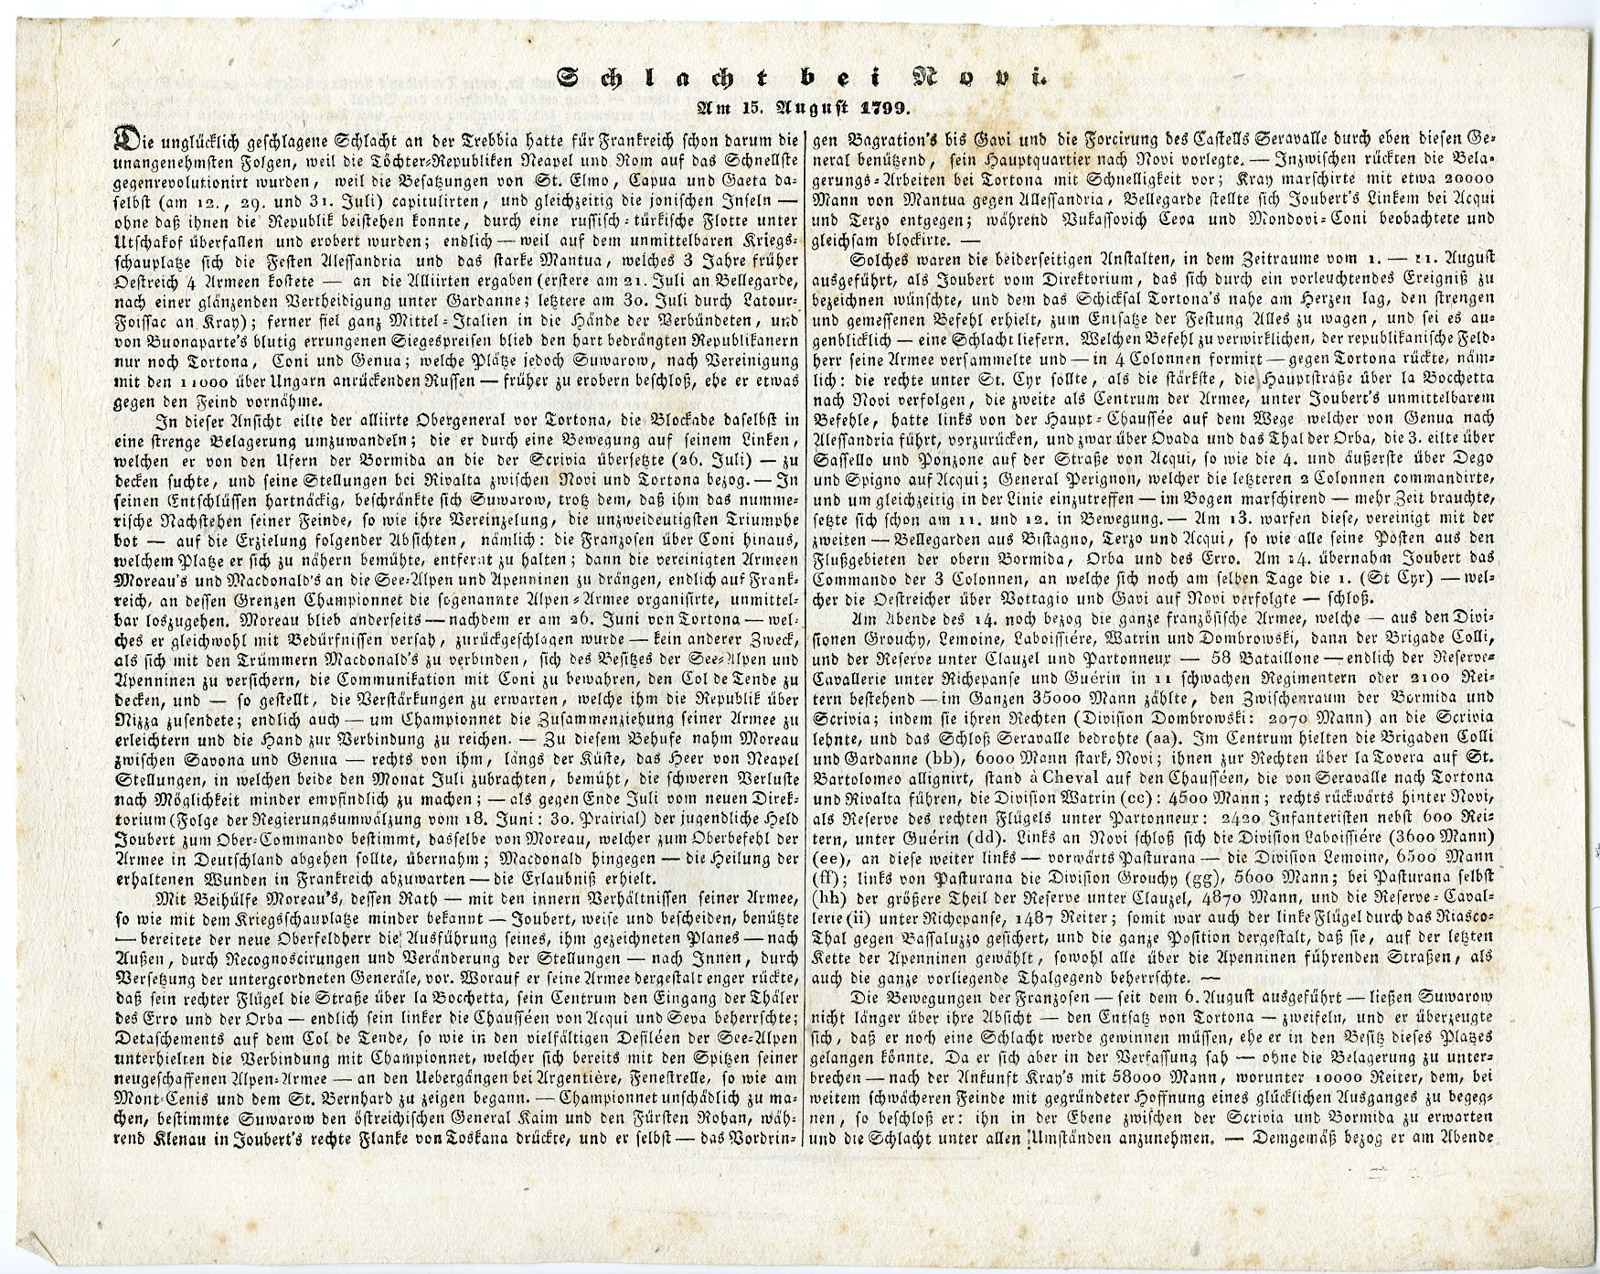 Schlacht bei Novi.
Am 15. August 1799.
Die unglücklich geschlagene Schlacht an der Trebbia hatte für Frankreich schon darum die
unangenehmsten Folgen, weil die Töchter-Republiken Neapel und Rom auf das Schnellste
gegenrevolutionirt wurden, weil die Besatzungen von St. Elmo, Capua und Gaeta da-
selbst (am 12., 29. und 31. Juli) capitulirten, und gleichzeitig die jonischen Inseln —
ohne daß ihnen die Republik beistehen konnte, durch eine russisch-türkische Flotte unter
Utschakof überfallen und erobert wurden; endlich — weil auf dem unmittelbaren Kriegs-
schauplatze sich die Festen Alessandria und das starke Mantua, welches 3 Jahre früher
Oestreich 4 Armeen kostete — an die Alliirten ergaben (erstere am 21. Juli an Bellegarde,
nach einer glänzenden Vertheidigung unter Gardanne; letztere am 30. Juli durch Latour-
Foissac an Kray); ferner fiel ganz Mittel-Italien in die Hände der Verbündeten, und
von Buonaparte's blutig errungenen Siegespreisen blieb den hart bedrängten Republikanern
nur noch Tortona, Coni und Genua; welche Plätze jedoch Suwarow, nach Vereinigung
mit den 11000 über Ungarn anrückenden Russen — früher zu erobern beschloß, ehe er etwas
gegen den Feind vornähme.
In dieser Ansicht eilte der alliirte Obergeneral vor Tortona, die Blockade daselbst in
eine strenge Belagerung umzuwandeln; die er durch eine Bewegung auf seinem Linken,
welchen er von den Ufern der Bormida an die der Scrivia übersetzte (26. Juli) — zu
decken suchte, und seine Stellungen bei Rivalta zwischen Novi und Tortona bezog. — In
seinen Entschlüssen hartnäckig, beschränkte sich Suwarow, trotz dem, daß ihm das numme-
rische Nachstehen seiner Feinde, so wie ihre Vereinzelung, die unzweideutigsten Triumphe
bot — auf die Erzielung folgender Absichten, nämlich: die Franzosen über Coni hinaus,
welchem Platze er sich zu nähern bemühte, entfernt zu halten; dann die vereinigten Armeen
Moreau's und Macdonald's an die See-Alpen und Apenninen zu drängen, endlich auf Frank-
reich, an dessen Grenzen Championnet die sogenannte Alpen-Armee organisirte, unmittel-
bar loszugehen. Moreau blieb anderseits — nachdem er am 26. Juni von Tortona — wel-
ches er gleichwohl mit Bedürfnissen versah, zurückgeschlagen wurde — kein anderer Zweck,
als sich mit den Trümmern Macdonald's zu verbinden, sich des Besitzes der See-Alpen und
Apenninen zu versichern, die Communikation mit Coni zu bewahren, den Col de Tende zu
decken, und — so gestellt, die Verstärkungen zu erwarten, welche ihm die Republik über
Nizza zusendete; endlich auch — um Championnet die Zusammenziehung seiner Armee zu
erleichtern und die Hand zur Verbindung zu reichen. — Zu diesem Behufe nahm Moreau
zwischen Savona und Genua — rechts von ihm, längs der Küste, das Heer von Neapel
Stellungen, in welchen beide den Monat Juli zubrachten, bemüht, die schweren Verluste
nach Möglichkeit minder empfindlich zu machen; — als gegen Ende Juli vom neuen Direk-
torium (Folge der Regierungsumwälzung vom 18. Juni: 30. Prairial) der jugendliche Held
Joubert zum Ober-Commando bestimmt, dasselbe von Moreau, welcher zum Oberbefehl der
Armee in Deutschland abgehen sollte, übernahm; Macdonald hingegen — die Heilung der
erhaltenen Wunden in Frankreich abzuwarten — die Erlaubniß erhielt.
Mit Beihülfe Moreau's, dessen Rath — mit den innern Verhältnissen seiner Armee,
so wie mit dem Kriegsschauplatze minder bekannt — Joubert, weise und bescheiden, benützte
— bereitete der neue Oberfeldherr die Ausführung seines, ihm gezeichneten Planes — nach
Außen, durch Recognoscirungen und Veränderung der Stellungen — nach Innen, durch
Versetzung der untergeordneten Generäle, vor. Worauf er seine Armee dergestalt enger rückte,
daß sein rechter Flügel die Straße über la Bocchetta, sein Centrum den Eingang der Thäler
des Erro und der Orba — endlich sein linker die Chausséen von Acqui und Seva beherrschte;
Detaschements auf dem Col de Tende, so wie in den vielfältigen Defiléen der See-Alpen
unterhielten die Verbindung mit Championnet, welcher sich bereits mit den Spitzen seiner
neugeschaffenen Alpen-Armee — an den Uebergängen bei Argentière, Fenestrelle, so wie am
Mont-Cenis und dem St. Bernhard zu zeigen begann. — Championnet unschädlich zu ma-
chen, bestimmte Suwarow den östreichischen General Kaim und den Fürsten Rohan, wäh-
rend Klenau in Joubert's rechte Flanke von Toskana drückte, und er selbst — das Vordrin-
gen Bagration's bis Gavi und die Forcirung des Castells Seravalle durch eben diesen Ge-
neral benützend, sein Hauptquartier nach Novi vorlegte. — Inzwischen rückten die Bela-
gerungs-Arbeiten bei Tortona mit Schnelligkeit vor; Kray marschirte mit etwa 20000
Mann von Mantua gegen Allessandria, Bellegarde stellte sich Joubert's Linkem bei Acqui
und Terzo entgegen; während Vukassovich Ceva und Mondovi-Coni beobachtete und
gleichsam blockirte. —
Solches waren die beiderseitigen Anstalten, in dem Zeitraume vom 1. — 11. August
ausgeführt, als Joubert vom Direktorium, das sich durch ein vorleuchtendes Ereigniß zu
bezeichnen wünschte, und dem das Schicksal Tortona's nahe am Herzen lag, den strengen
und gemessenen Befehl erhielt, zum Entsatze der Festung Alles zu wagen, und sei es au-
genblicklich — eine Schlacht liefern. Welchen Befehl zu verwirklichen, der republikanische Feld-
herr seine Armee versammelte und — in 4 Colonnen formirt — gegen Tortona rückte, näm-
lich: die rechte unter St. Cyr sollte, als die stärkste, die Hauptstraße über la Bocchetta
nach Novi verfolgen, die zweite als Centrum der Armee, unter Joubert's unmittelbarem
Befehle, hatte links von der Haupt-Chaussée auf dem Wege welcher von Genua nach
Alessandria führt, vorzurücken, und zwar über Ovada und das Thal der Orba, die 3. eilte über
Sassello und Ponzone auf der Straße von Acqui, so wie die 4. und äußerste über Dego
und Spigno auf Acqui; General Perignon, welcher die letzteren 2 Colonnen commandirte,
und um gleichzeitig in der Linie einzutreffen — im Bogen marschirend — mehr Zeit brauchte,
setzte sich schon am 11. und 12. in Bewegung. — Am 13. warfen diese, vereinigt mit der
zweiten — Bellegarden aus Bistagno, Terzo und Acqui, so wie alle seine Posten aus den
Flußgebieten der obern Bormida, Orba und des Erro. Am 14. übernahm Joubert das
Commando der 3 Colonnen, an welche sich noch am selben Tage die 1. (St Cyr) — wel-
cher die Oestreicher über Vottagio und Gavi auf Novi verfolgte — schloß.
Am Abende des 14. noch bezog die ganze französische Armee, welche — aus den Divi-
sionen Grouchy, Lemoine, Laboissiére, Watrin und Dombrowski, dann der Brigade Colli,
und der Reserve unter Clauzel und Partonneux — 58 Bataillone — endlich der Reserve-
Cavallerie unter Richepanse und Guérin in 11 schwachen Regimentern oder 2100 Rei-
tern bestehend — im Ganzen 35000 Mann zählte, den Zwischenraum der Bormida und
Scrivia; indem sie ihren Rechten (Division Dombrowski: 2070 Mann) an die Scrivia
lehnte, und das Schloß Seravalle bedrohte (aa). Im Centrum hielten die Brigaden Colli
und Gardanne (bb), 6000 Mann stark, Novi; ihnen zur Rechten über la Tovera auf St.
Bartolomeo allignirt, stand à Cheval auf den Chausséen, die von Seravalle nach Tortona
und Rivalta führen, die Division Watrin (cc): 4500 Mann; rechts rückwärts hinter Novi,
als Reserve des rechten Flügels unter Partonneux: 2420 Infanteristen nebst 600 Rei-
tern, unter Guérin (dd). Links an Novi schloß sich die Division Laboissiére (3600 Mann)
(ee), an diese weiter links — vorwärts Pasturana — die Division Lemoine, 6500 Mann
(ff); links von Pasturana die Division Grouchy (gg), 5600 Mann; bei Pasturana selbst
(hh) der größere Theil der Reserve unter Clauzel, 4870 Mann, und die Reserve-Caval-
lerie (ii) unter Richepanse, 1487 Reiter; somit war auch der linke Flügel durch das Riasco-
Thal gegen Bassaluzzo gesichert, und die ganze Position dergestalt, daß sie, auf der letzten
Kette der Apenninen gewählt, sowohl alle über die Apenninen führenden Straßen, als
auch die ganze vorliegende Thalgegend beherrschte. —
Die Bewegungen der Franzosen — seit dem 6. August ausgeführt — ließen Suwarow
nicht länger über ihre Absicht — den Entsatz von Tortona — zweifeln, und er überzeugte
sich, daß er noch eine Schlacht werde gewinnen müssen, ehe er in den Besitz dieses Platzes
gelangen könnte. Da er sich aber in der Verfassung sah — ohne die Belagerung zu unter-
brechen — nach der Ankunft Kray's mit 58000 Mann, worunter 10000 Reiter, dem, bei
weitem schwächeren Feinde mit gegründeter Hoffnung eines glücklichen Ausganges zu begeg-
nen, so beschloß er: ihn in der Ebene zwischen der Scrivia und Bormida zu erwarten
und die Schlacht unter allen Umständen anzunehmen. — Demgemäß bezog er am Abende